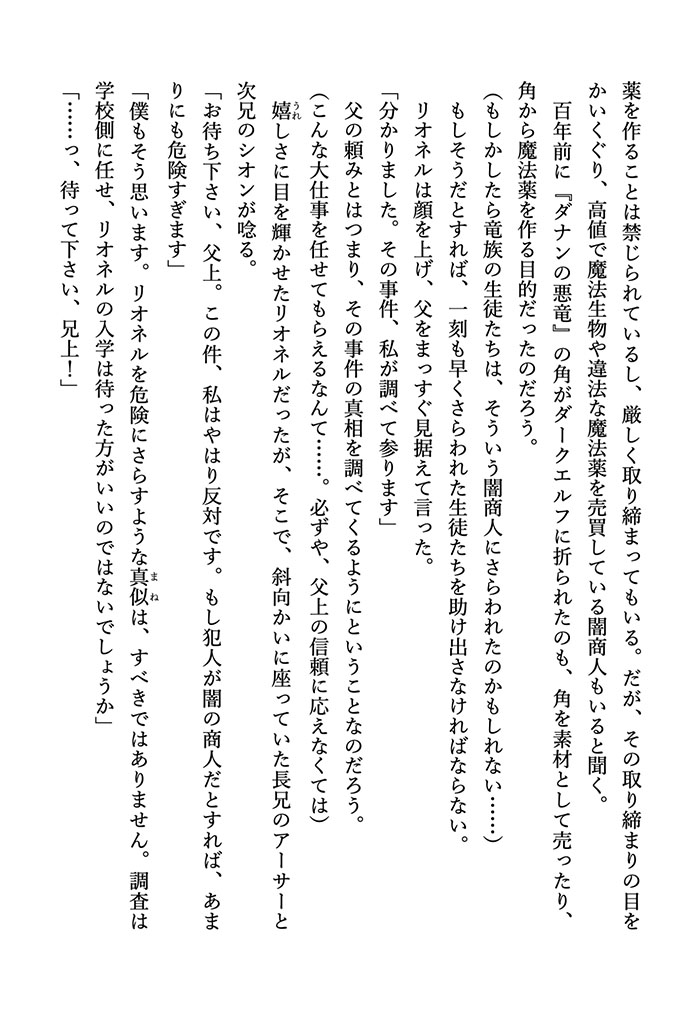 薬を作ることは禁じられているし、厳しく取り締まってもいる。だが、その取り締まりの目を
かいくぐり、高値で魔法生物や違法な魔法薬を売買している闇商人もいると聞く。
　百年前に『ダナンの悪竜』の角がダークエルフに折られたのも、角を素材として売ったり、
角から魔法薬を作る目的だったのだろう。
（もしかしたら竜族の生徒たちは、そういう闇商人にさらわれたのかもしれない……）
　もしそうだとすれば、一刻も早くさらわれた生徒たちを助け出さなければならない。
　リオネルは顔を上げ、父をまっすぐ見据えて言った。
「分かりました。その事件、私が調べて参ります」
　父の頼みとはつまり、その事件の真相を調べてくるようにということなのだろう。
（こんな大仕事を任せてもらえるなんて……。必ずや、父上の信頼に応えなくては）
　嬉しさに目を輝かせたリオネルだったが、そこで、斜向かいに座っていた長兄のアーサーと
次兄のシオンが唸る。
「お待ち下さい、父上。この件、私はやはり反対です。もし犯人が闇の商人だとすれば、あま
りにも危険すぎます」
「僕もそう思います。リオネルを危険にさらすような真似は、すべきではありません。調査は
学校側に任せ、リオネルの入学は待った方がいいのではないでしょうか」
「……っ、待って下さい、兄上！」